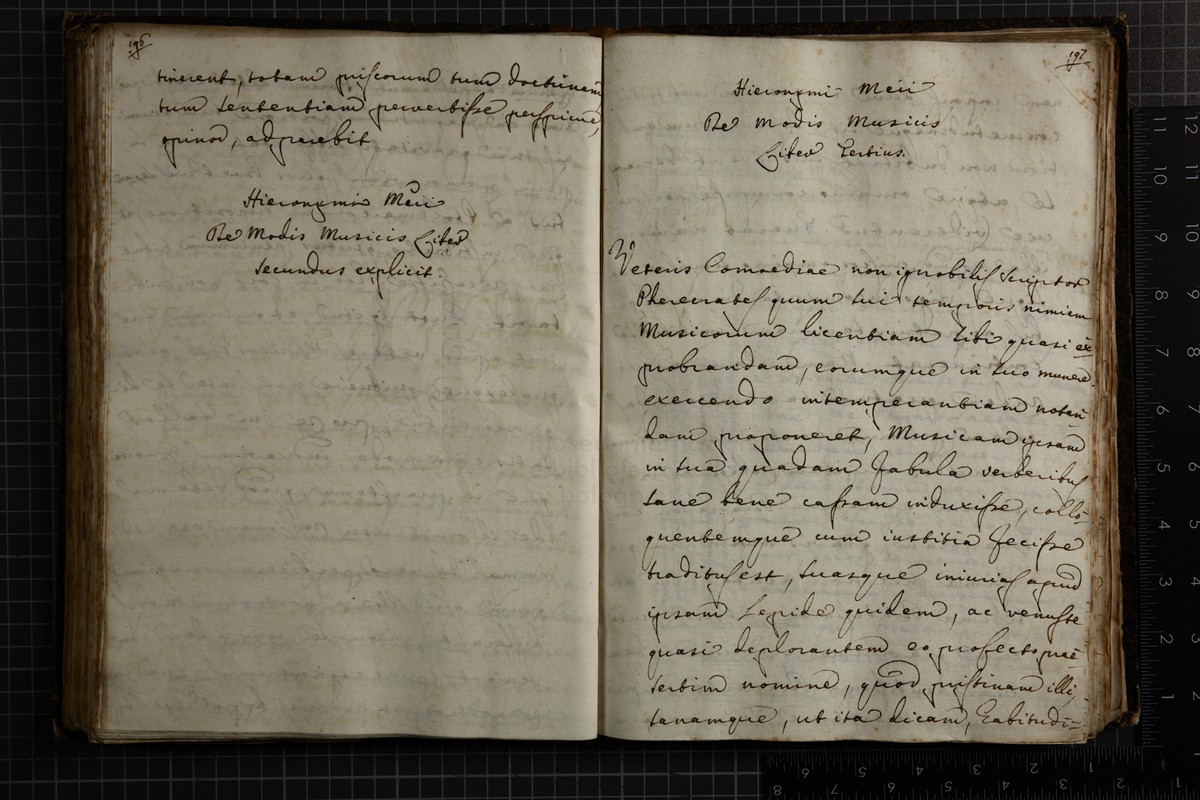 196
tinerent, totam priscorum tum doctrinam
tum sententiam pervertisse perspicue,
opinor, adparebit
Hieronymi Meii
De Modis Musicis Liber
Secundus explicit.
197
Hieronymi Meii
De Modis Musicis
Liber Tertius.
Veteris Comoediae non ignobilis scriptor
Pherecrates quum sui temporis nimiam
Musicorum licentiam sibi quasi ex
probrandam, eorumque in suo munere
exercendo intemperantiam notan
dam proponeret, Musicam ipsam
in sua quadam fabula verberibus
sane bene caesam induxisse, collo
quentemque cum iustitia fecisse
traditus est, suasque iniurias apud
ipsam lepide quidem, ac venuste
quasi deplorantem eo profecto prae
sertim nomine, quod pristinam illi,
sanamque, ut ita dicam, habitudi=